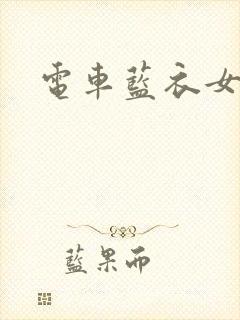 電車藍衣女
藍果而